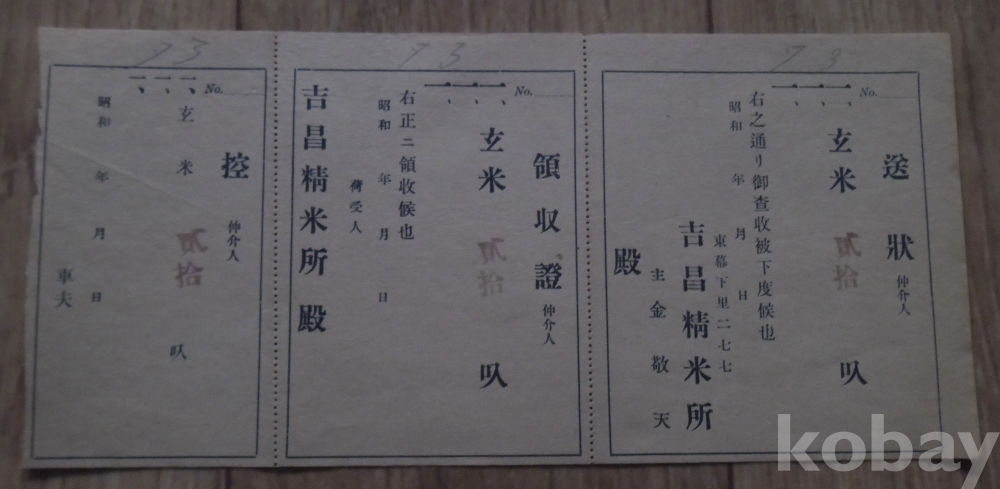 73
No.
送狀
仲介人
一、一、一、
玄米 貳拾 叺
右之通リ御査收被下度候也
昭和 年 月 日
東幕下里二七七
吉昌精米所
主 金敬天
殿
73
No.
領収證
仲介人
一、一、一、
玄米 貳拾 叺
右正ニ領收候也
昭和 年 月 日
荷受人
吉昌精米所殿
73
No.
控
仲介人
一、一、一、
玄米 貳拾 叺
昭和 年 月 日
車夫
kobay